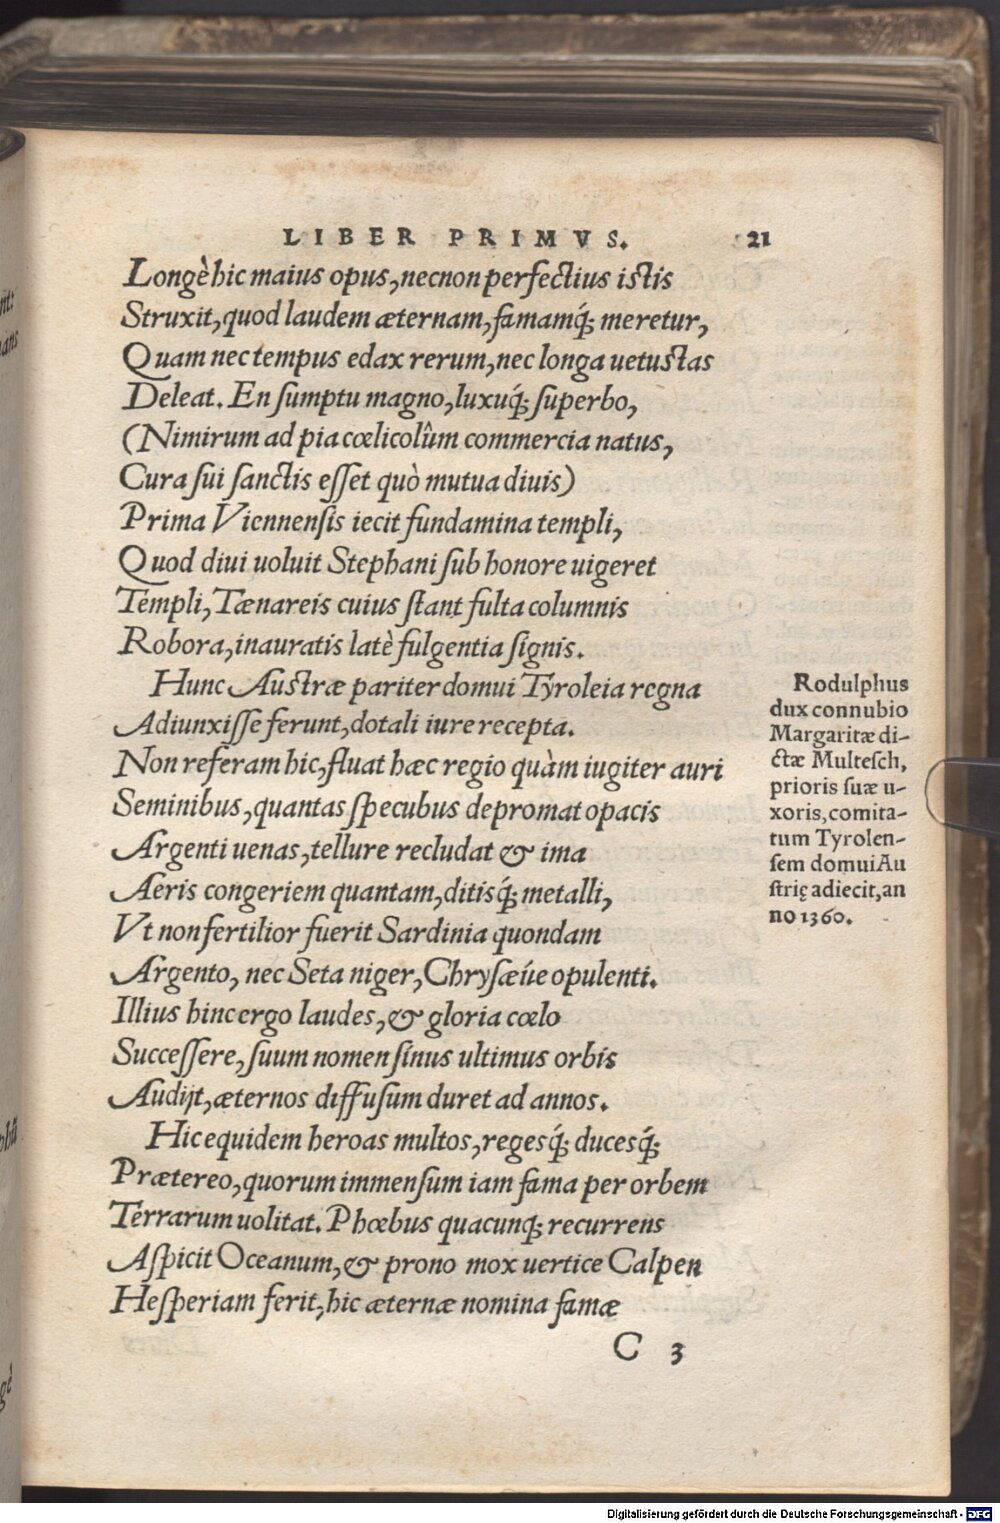 LIBER PRIMVS. 21
Longè hic maius opus, necnon perfectius istis
Struxit, quod laudem æternam, famamq́; meretur,
Quam nec tempus edax rerum, nec longa uetustas
Deleat. En ſumptu magno, luxuq́; ſuperbo,
(Nimirum ad pia cœlicolûm commercia natus,
Cura ſui ſanctis eſſet quò mutua diuis)
Prima Viennenſis iecit fundamina templi,
Quod diui uoluit Stephani ſub honore uigeret
Templi, Tænareis cuius ſtant fulta columnis
Robora, inauratis latè fulgentia ſignis.
Hunc Austræ pariter domui Tyroleia regna
Adiunxiſſe ferunt, dotali iure recepta.
Non referam hic, fluat hæc regio quàm iugiter auri
Seminibus, quantas ſpecubus depromat opacis
Argenti uenas, tellure recludat & ima
Aeris congeriem quantam, ditisq́; metalli,
Vt non fertilior fuerit Sardinia quondam
Argento, nec Seta niger, Chryſæúe opulenti.
Illius hinc ergo laudes, & gloria cœlo
Succeſſere, ſuum nomen ſinus ultimus orbis
Audijt, æternos diffuſum duret ad annos.
Hic equidem heroas multos, regesq́; ducesq́;
Prætereo, quorum immenſum iam fama per orbem
Terrarum uolitat. Phœbus quacunq; recurrens
Aſpicit Oceanum, & prono mox uertice Calpen
Heſperiam ferit, hic æternæ nomina famæ
C 3
Rodulphus
dux connubio
Margaritæ di-
ctæ Multeſch,
prioris ſuæ u-
xoris, comita-
tum Tyrolen-
ſem domui Au
ſtrię adiecit, an
no 1360.
Digitalisierung gefördert durch die Deutsche Forschungsgemeinschaft - DFG